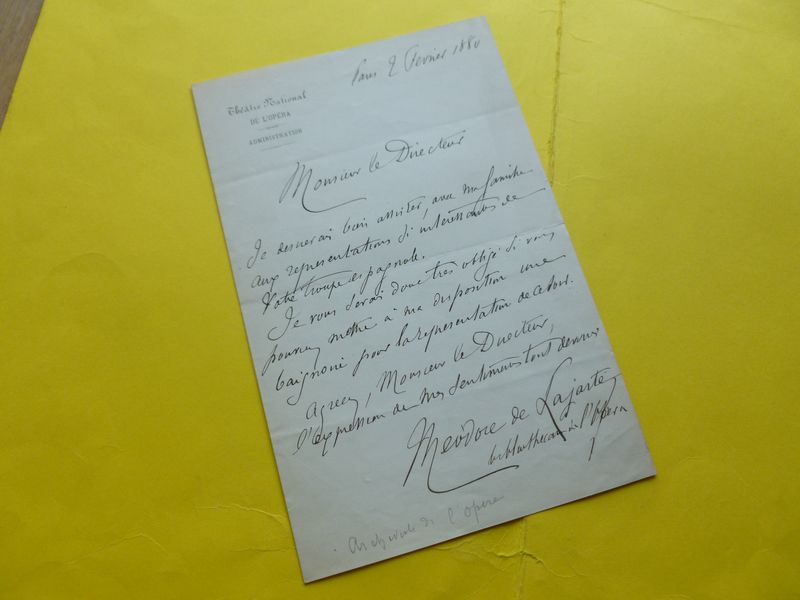 Paris 2 Fevrier 1880
Théâtre National
DE L'OPÉRA
ADMINISTRATION
Monsieur le Directeur
Je desirerais bien assister, avec ma famille
aux representations si interessantes de
votre troupe espagnole.
Je vous serai donc très obligé si vous
pouviez mettre à ma disposition une
baignoire pour la representation de ce soir.
Agréez, Monsieur le Directeur,
l'expression de mes sentiments tout devoués
Theodore de Lajarte
bibliothécaire à l'Opera
Archiviste de l'Opera